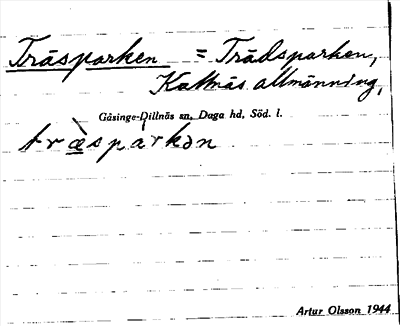 Träsparken = Trädsparken,
Kattnäs allmänning,
Gåsinge-Dillnäs sn, Daga hd, Söd. l.
træ̀spàrkən
Artur Olsson 1944